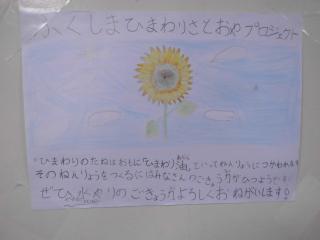 ふくしまひまわりさとおやプロジェクト
ひまわりのたねはおもに「ひまわり油」といってねんりょうにつかわれます
そのねんりょうをつくるにはみなさんのごきょう力がひつようです
ぜひ水やりのごきょう力よろしくおねがいします!